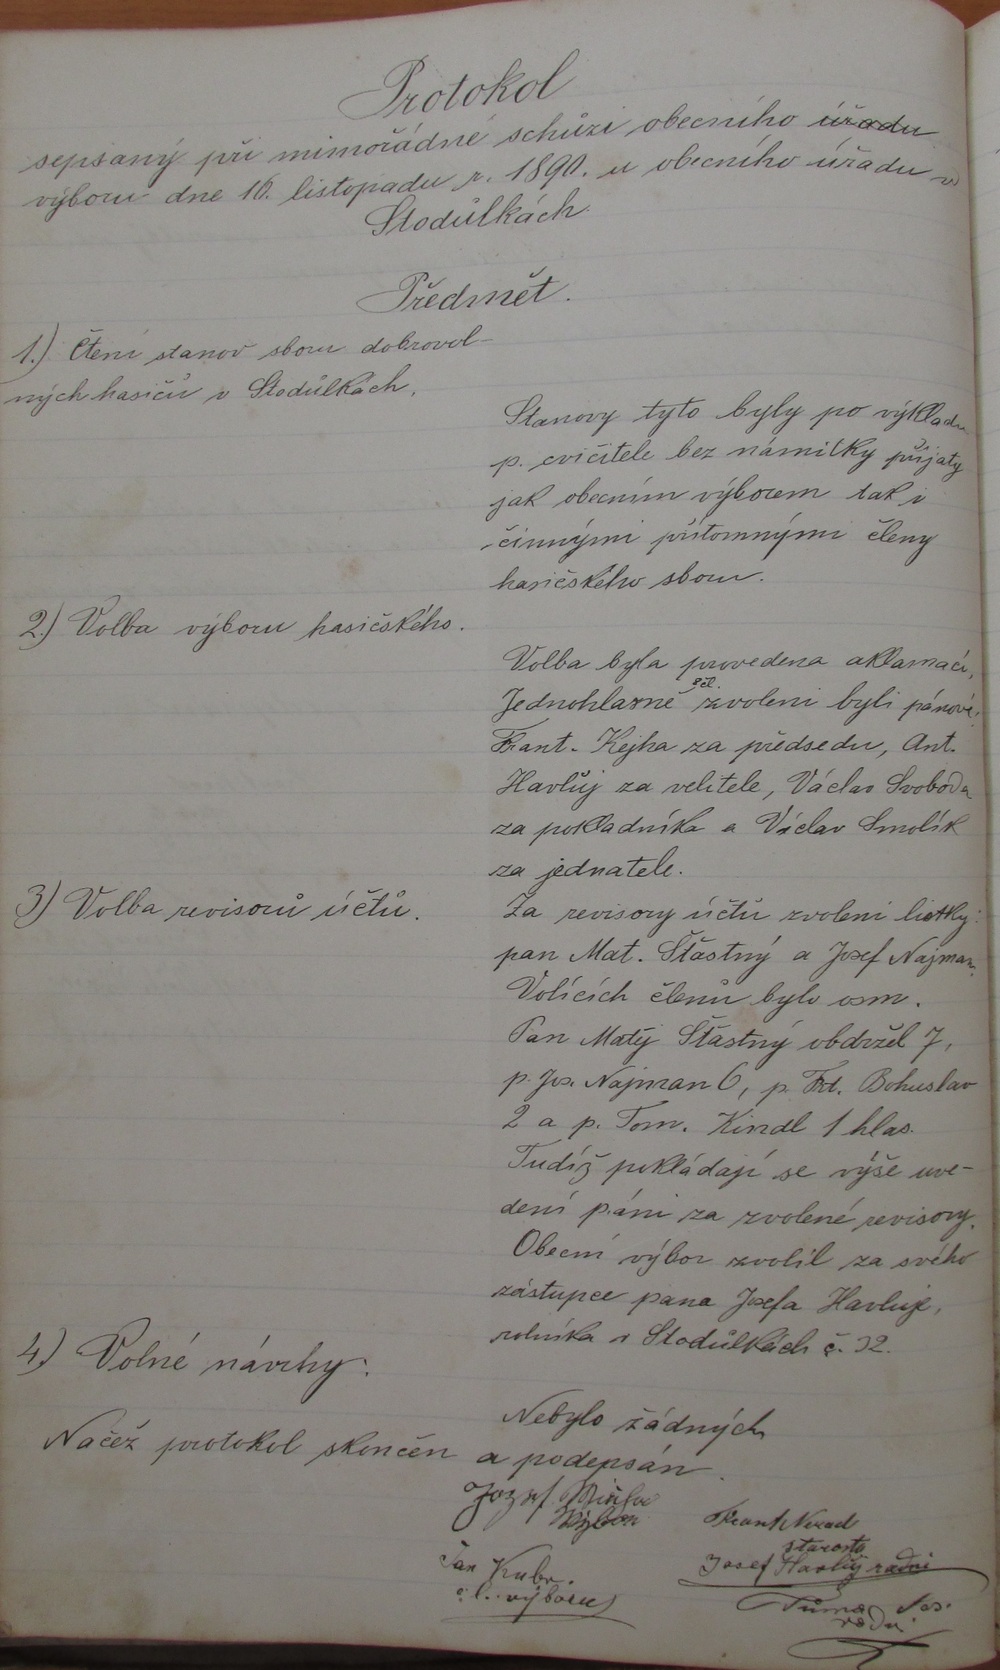 Protokol
sepsaný při mimořádné schůzi obecního úřadu
výboru dne 16. listopadu r. 1890. u obecního úřadu v
Stodůlkách.
Předmět.
1.) Čtení stanov sboru dobrovol-
ných hasičů v Stodůlkách.
Stanovy tyto byly po výkladu
p. cvičitele bez námitky přijaty
jak obecním výborem tak i
činnými přítomnými členy
hasičského sboru.
2.) Volba výboru hasičského.
Volba byla provedena aklamací,
Jednohlasně zvoleni byli pánové:
Frant. Kejha za předsedu, Ant.
Havlůj za velitele, Václav Svoboda
za pokladníka a Václav Smolík
za jednatele.
3) Volba revisorů účtů.
Za revisory účtů zvoleni lístky:
pan Mat. Šťastný a Josef Najman.
Volících členů bylo osm.
Pan Matěj Šťastný obdržel 7,
p. Jos. Najman 6, p. Frt. Bohuslav
2 a p. Tom. Kindl 1 hlas.
Tudíž pokládají se výše uve-
dení páni za zvolené revisory.
Obecní výbor zvolil za svého
zástupce pana Josefa Havluje,
rolníka v Stodůlkách č. 32.
4) Volné návrhy:
Nebylo žádných
Načež protokol skončen a podepsán.
Jozef
Výbor
Frant Nerad
starosta
Josef Havlůj radní
Jan Kubr.
čl. výboru
Tůma Jos.
radní